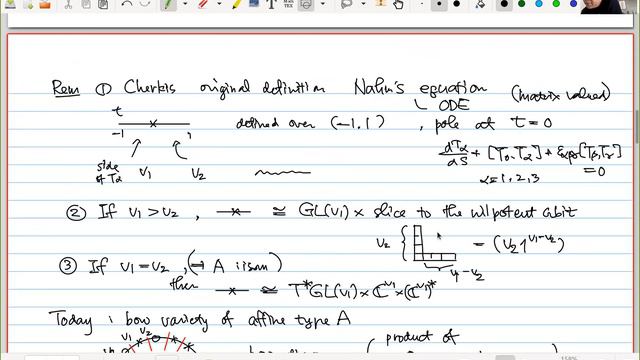 Rem ① Cherkis original definition Nahm's equation (matrix valued)
ODE
t
-1 1 defined over (-1,1), pole at t=0
side of Tα V1 V2
dTα/ds + [T0,Tα] + εαβγ[Tβ,Tγ] = 0
α=1,2,3
② If V1>V2, ≅ GL(V1) × slice to the nilpotent orbit
V2 V1-V2 = (V2 1^{V1-V2})
③ If V1=V2, (⇒ A isom)
then ≅ T*GL(V1) × ℂ^{V1} × (ℂ^{V1})*
Today : bow variety of affine type A
V1 V2 product of